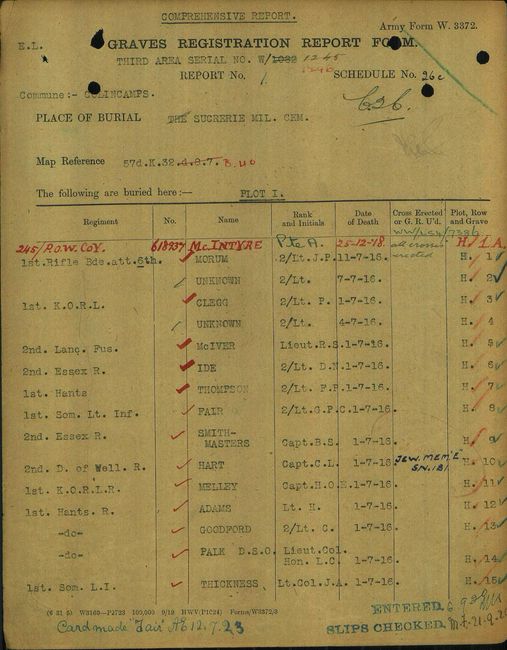 COMPREHENSIVE REPORT.
Army Form W. 3372.
E.L.
GRAVES REGISTRATION REPORT FORM.
THIRD AREA SERIAL NO. W/1032 1245
REPORT No. 1 SCHEDULE No. 26c
Commune:- COLINCAMPS.
C26.
PLACE OF BURIAL THE SUCRERIE MIL. CEM.
Map Reference 57d.K.32.4.8.7. 3.40
The following are buried here:— PLOT I.
Regiment No. Name Rank and Initials Date of Death Cross Erected or G. R. U'd. Plot, Row and Grave
245/P.O.W. COY. 618937 McINTYRE Pte A. 25-12-18. all crosses erected H. 1 A.
1st.Rifle Bde.att.6th. MORUM 2/Lt.J.P. 11-7-16. H. 1
UNKNOWN 2/Lt. 7-7-16. H. 2
1st. K.O.R.L. CLEGG 2/Lt. P. 1-7-16. H. 3
UNKNOWN 2/Lt. 4-7-16. H. 4
2nd. Lanc. Fus. McIVER Lieut.R.S. 1-7-16. H. 5
2nd. Essex R. IDE 2/Lt. D.N. 1-7-16. H. 6
1st. Hants THOMPSON 2/Lt. F.P. 1-7-16. H. 7
1st. Som. Lt. Inf. FAIR 2/Lt.G.P.C. 1-7-16. H. 8
2nd. Essex R. SMITH-MASTERS Capt.B.S. 1-7-16. H. 9
2nd. D. of Well. R. HART Capt.C.L. 1-7-16. JEW. MEM'E S/N. 181 H. 10
1st. K.O.R.L.R. MELLEY Capt.H.O.E. 1-7-16. H. 11
1st. Hants. R. ADAMS Lt. H. 1-7-16. H. 12
-do- GOODFORD 2/Lt. C. 1-7-16. H. 13
-do- PALK D.S.O. Lieut.Col. Hon. L.C. 1-7-16. H. 14
1st. Som. L.I. THICKNESS Lt.Col.J.A. 1-7-16. H. 15
(6 31 5) W3165—P2723 100,000 9/19 HWV(P1024) Forms/W3372/3
ENTERED.
Card made "Fair" AE 12.7.23
SLIPS CHECKED.